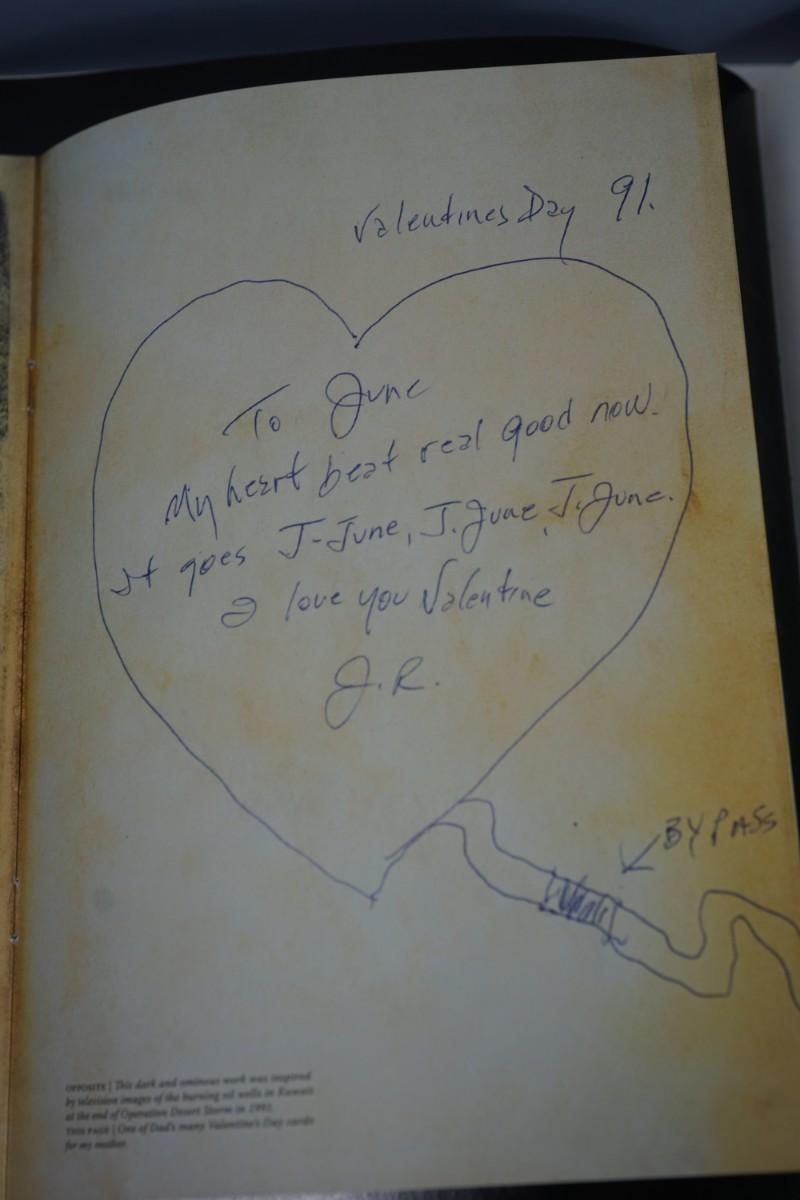 Valentines Day 91.
To June
My heart beat real good now.
It goes J-June, J. June, J. June.
I love you Valentine
J.R.
BYPASS
OPPOSITE | This dark and ominous work was inspired
by television images of the burning oil wells in Kuwait
at the end of Operation Desert Storm in 1991.
THIS PAGE | One of Dad's many Valentine's Day cards
for my mother.